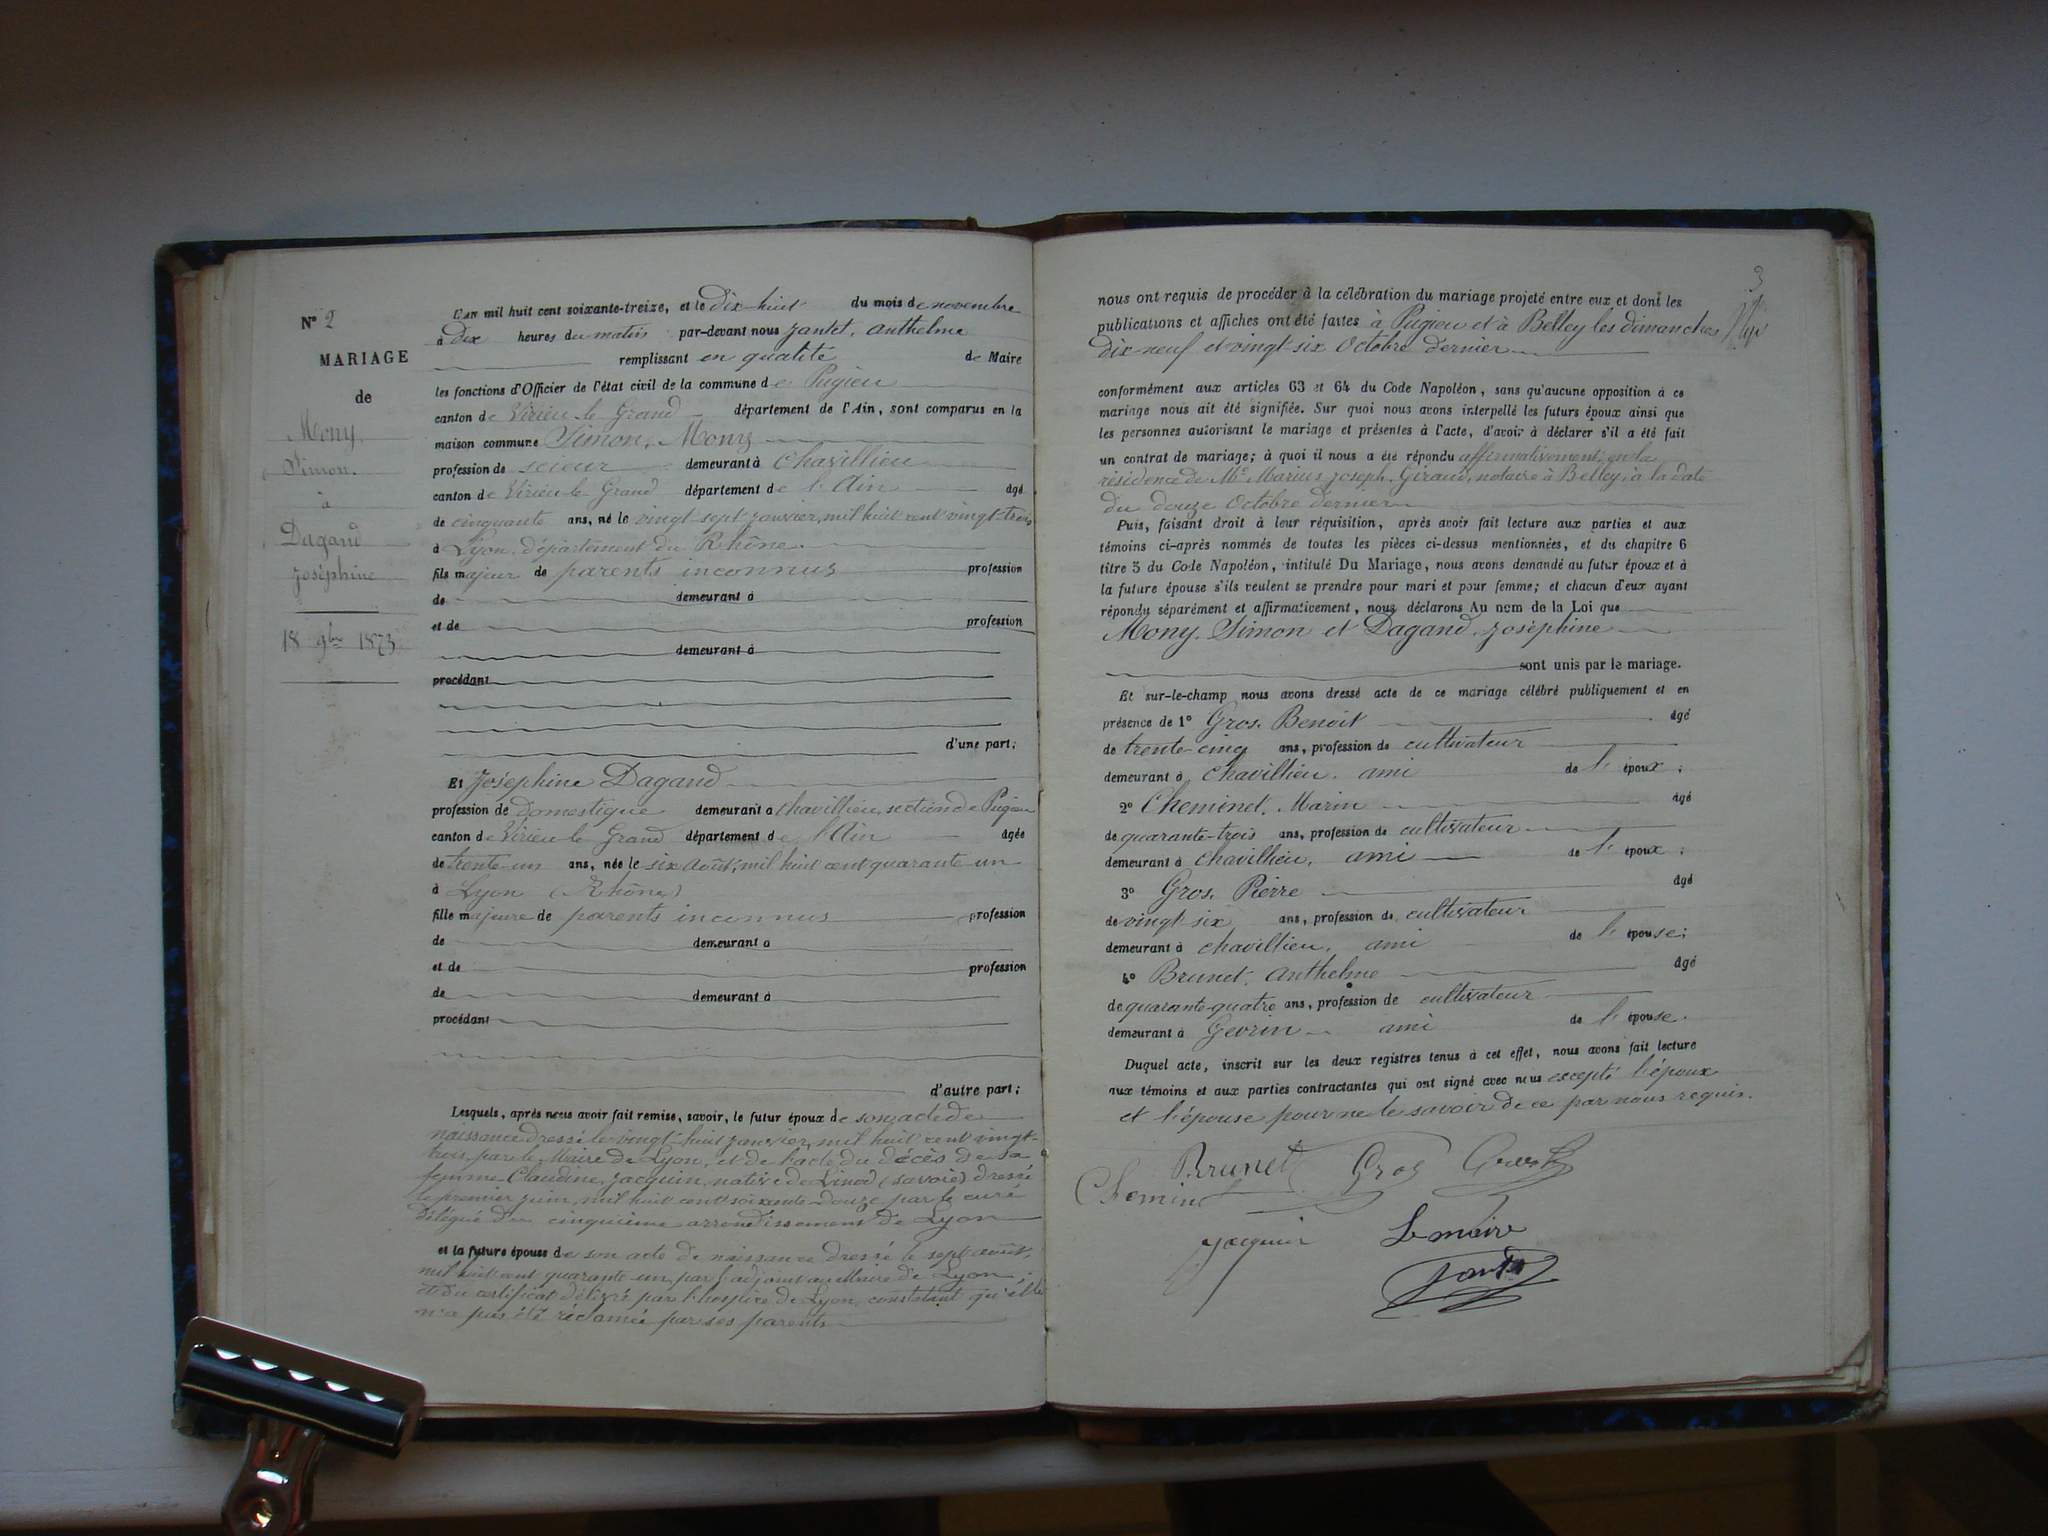 N° 2
MARIAGE
de
Mony
Simon.
à
Dagand
Joséphine
18 9bre 1873
L'AN mil huit cent soixante-treize, et le dix-huit du mois de novembre
à dix heures du matin par-devant nous Jantet, Anthelme
remplissant en qualité de Maire
les fonctions d'Officier de l'état civil de la commune de Pugieu
canton de Virieu-le-Grand département de l'Ain, sont comparus en la
maison commune Simon, Mony
profession de scieur demeurant à Chavillieu
canton de Virieu-le-Grand département de l'Ain âgé
de cinquante ans, né le vingt-sept janvier, mil huit cent vingt-trois
à Lyon, département du Rhône
fils majeur de parents inconnus profession
de demeurant à
et de profession
demeurant à
procédant
d'une part;
Et Joséphine Dagand
profession de Domestique demeurant à Chavillieu, section de Pugieu
canton de Virieu-le-Grand département de l'Ain âgée
de trente-un ans, née le six août, mil huit cent quarante-un
à Lyon (Rhône)
fille majeure de parents inconnus profession
de demeurant à
et de profession
de demeurant à
procédant
d'autre part;
Lesquels, après nous avoir fait remise, savoir, le futur époux de son acte de
naissance dressé le vingt-huit janvier, mil huit cent vingt-
trois, par le Maire de Lyon, et de l'acte du décès de sa
femme Claudine, Jacquin, native de (Savoie) dressé
le premier juin, mil huit cent soixante-douze par le curé
délégué du cinquième arrondissement de Lyon
et la future épouse de son acte de naissance dressé le sept août,
mil huit cent quarante-un, par l'adjoint au Maire de Lyon;
et du certificat délivré par l'hospice de Lyon, constatant qu'elle
n'a pas été réclamée par ses parents
3
nous ont requis de procéder à la célébration du mariage projeté entre eux et dont les
publications et affiches ont été faites à Pugieu et à Belley les dimanches
dix-neuf et vingt-six Octobre dernier
conformément aux articles 63 et 64 du Code Napoléon, sans qu'aucune opposition à ce
mariage nous ait été signifiée. Sur quoi nous avons interpellé les futurs époux ainsi que
les personnes autorisant le mariage et présentes à l'acte, d'avoir à déclarer s'il a été fait
un contrat de mariage; à quoi il nous a été répondu affirmativement, en la
résidence de Me Marius Joseph Giraud, notaire à Belley, à la date
du douze Octobre dernier
Puis, faisant droit à leur réquisition, après avoir fait lecture aux parties et aux
témoins ci-après nommés de toutes les pièces ci-dessus mentionnées, et du chapitre 6
titre 5 du Code Napoléon, intitulé Du Mariage, nous avons demandé au futur époux et à
la future épouse s'ils veulent se prendre pour mari et pour femme; et chacun d'eux ayant
répondu séparément et affirmativement, nous déclarons Au nom de la Loi que
Mony, Simon et Dagand, Joséphine
sont unis par le mariage.
Et sur-le-champ nous avons dressé acte de ce mariage célébré publiquement et en
présence de 1° Gros, Benoit âgé
de trente-cinq ans, profession de cultivateur
demeurant à Chavillieu, ami de l'époux;
2° Cheminet, Marin âgé
de quarante-trois ans, profession de cultivateur
demeurant à Chavillieu, ami de l'époux;
3° Gros, Pierre âgé
de vingt-six ans, profession de cultivateur
demeurant à Chavillieu, ami de l'épouse;
4° Brunet, Anthelme âgé
de quarante-quatre ans, profession de cultivateur
demeurant à Gevrin ami de l'épouse.
Duquel acte, inscrit sur les deux registres tenus à cet effet, nous avons fait lecture
aux témoins et aux parties contractantes qui ont signé avec nous excepté l'époux
et l'épouse pour ne le savoir de ce par nous requis.
Brunet Gros
Cheminet
Jacquin Le maire
Jantet